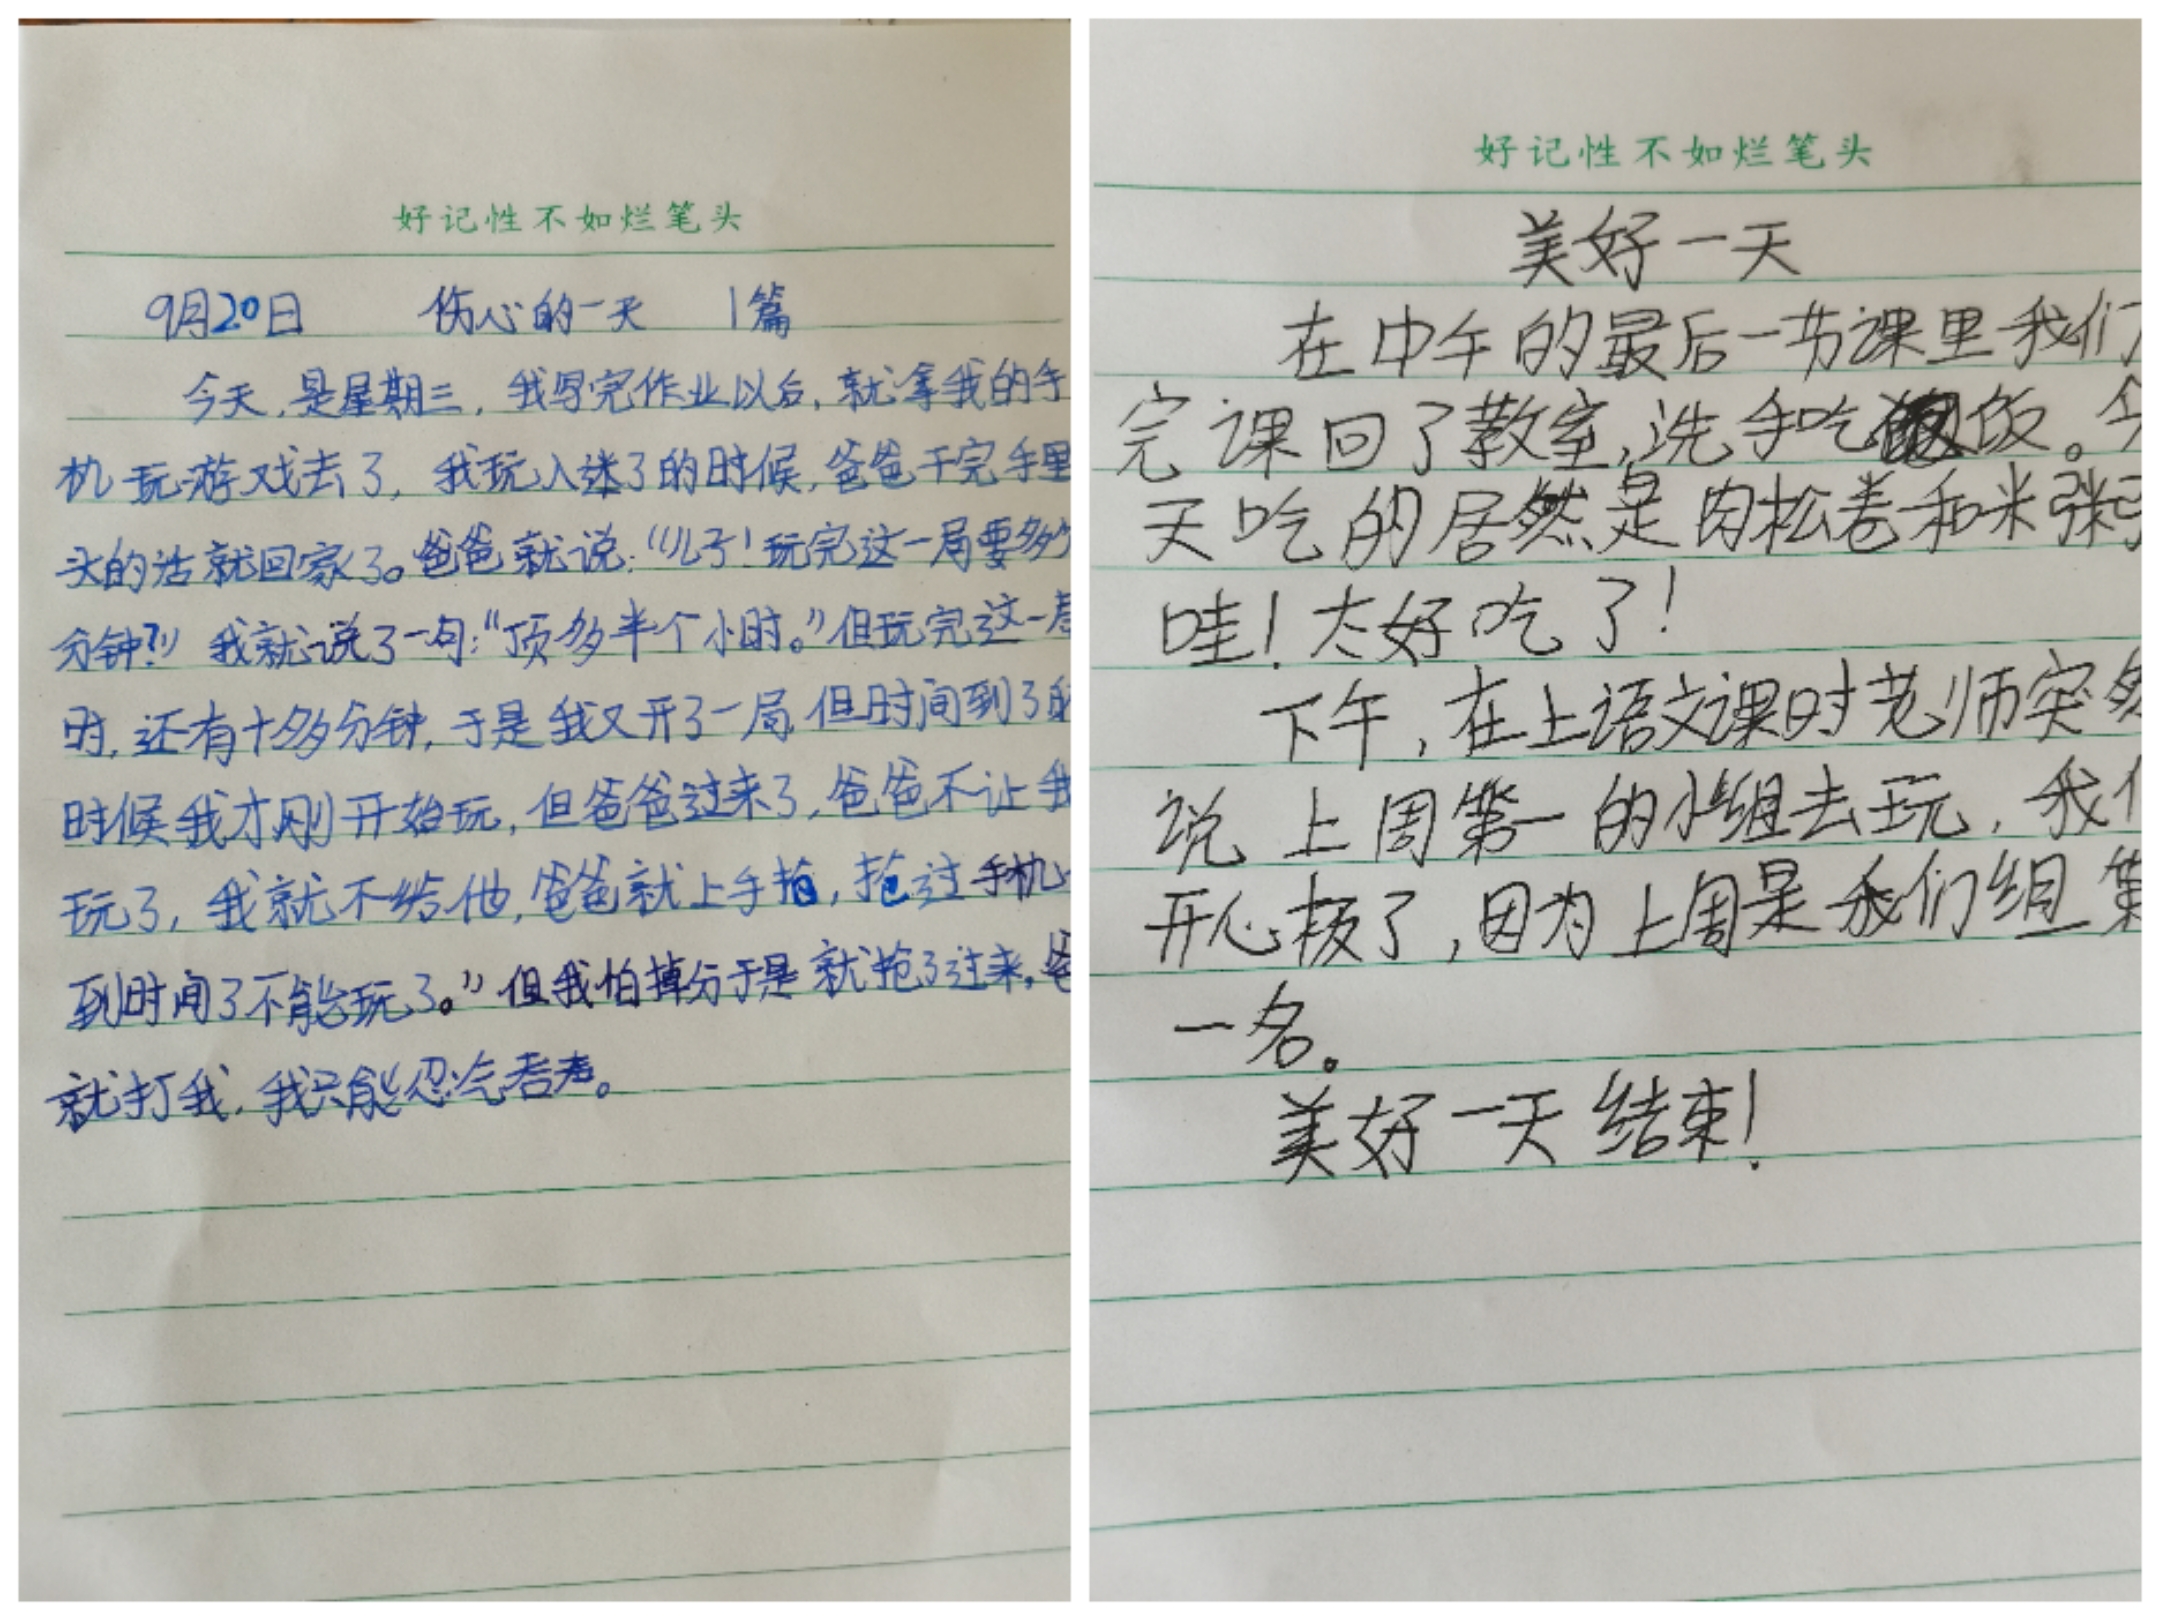 好记性不如烂笔头
9月20日 伤心的一天 1篇
今天,是星期三,我写完作业以后,就拿我的手
机玩游戏去了,我玩入迷了的时候,爸爸干完手里
头的活就回家了。爸爸就说:“儿子!玩完这一局要多少
分钟?”我就说了一句:“顶多半个小时。”但玩完这一局
时,还有十多分钟,于是我又开了一局,但时间到了的
时候我才刚开始玩,但爸爸过来了,爸爸不让我
玩了,我就不给他,爸爸就上手抢,抢过手机
到时间了不能玩了。”但我怕掉分于是就抢了过来,爸
就打我,我只能忍气
好记性不如烂笔头
美好一天
在中午的最后一节课里我们
完课回了教室,洗手吃饭。今
天吃的居然是肉松卷和米
哇!太好吃了!
下午,在上语文课时老师突
说上周第一的小组去玩,我们
开心极了,因为上周是我们组第
一名。
美好一天结束!